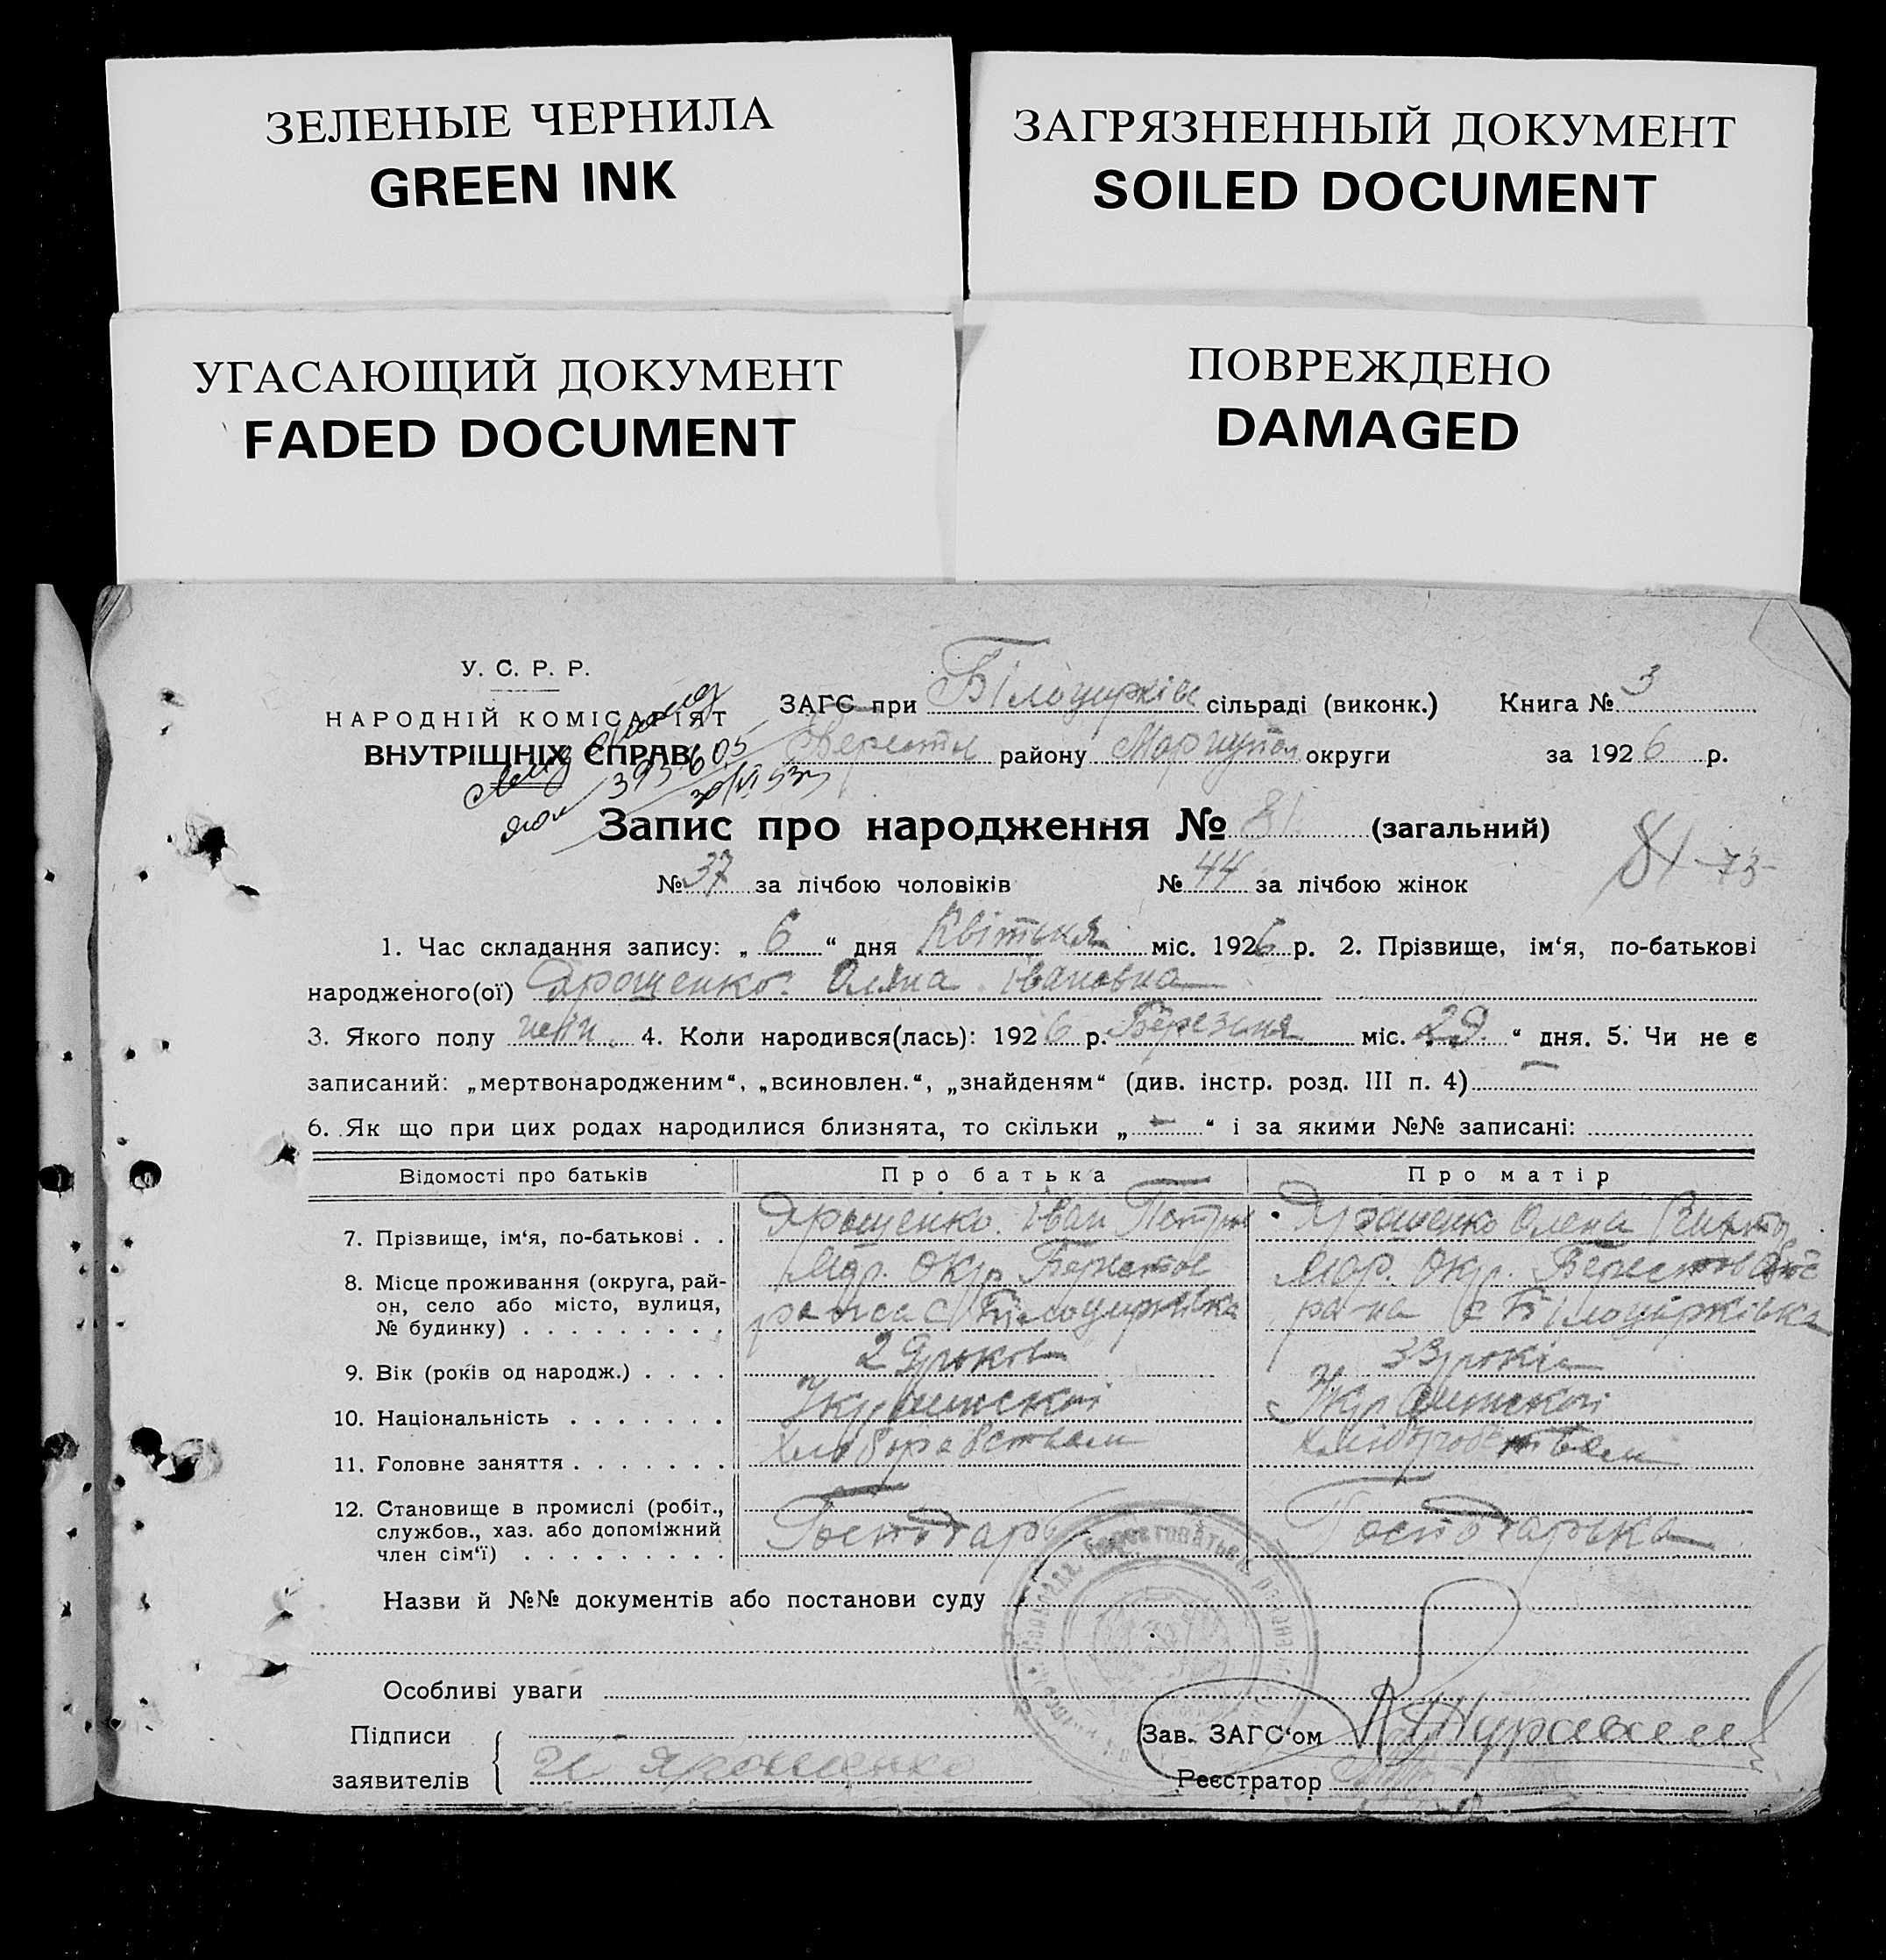 ЗЕЛЕНЫЕ ЧЕРНИЛА
GREEN INK
ЗАГРЯЗНЕННЫЙ ДОКУМЕНТ
SOILED DOCUMENT
УГАСАЮЩИЙ ДОКУМЕНТ
FADED DOCUMENT
ПОВРЕЖДЕНО
DAMAGED
У. С. Р. Р.
НАРОДНІЙ КОМІСАРІЯТ
ВНУТРІШНІХ СПРАВ
393605
ЗАГС при Білоцирківс сільраді (виконк.) Книга № 3
району Маріупол округи за 1926 р.
Запис про народження № 81 (загальний)
81 73
№ 37 за лічбою чоловіків № 44 за лічбою жінок
1. Час складання запису: „ 6 “ дня Квітня міс. 1926 р. 2. Прізвище, ім‘я, по-батькові
народженого(ої) Ярошенко Івановна
3. Якого полу 4. Коли народився(лась): 1926 р. Березня міс. „ 29 “ дня. 5. Чи не є
записаний: „мертвонародженим“, „всиновлен.“, „знайденям“ (див. інстр. розд. III п. 4) —
6. Як що при цих родах народилися близнята, то скільки „ — “ і за якими №№ записані:
Відомості про батьків Про батька Про матір
7. Прізвище, ім‘я, по-батькові . . Ярошенко Іван Петров Ярошенко Олена
8. Місце проживання (округа, рай-
он, село або місто, вулиця,
№ будинку) . . . . . . . . .
Мар. Окр. Берестов Мар. Окр. Берестов
рана с Білоцирківка рана с Білоцирківка
9. Вік (років од народж.) . . . . 29 років 33 років
10. Національність . . . . . . . Української Української
11. Головне заняття . . . . . . . Хліборобством
12. Становище в промислі (робіт.,
службов., хаз. або допоміжний
член сім‘ї) . . . . . . . . .
Господар Господарька
Назви й №№ документів або постанови суду
Особливі уваги
Підписи
заявителів
И Ярошенко
Зав. ЗАГС‘ом
Реєстратор